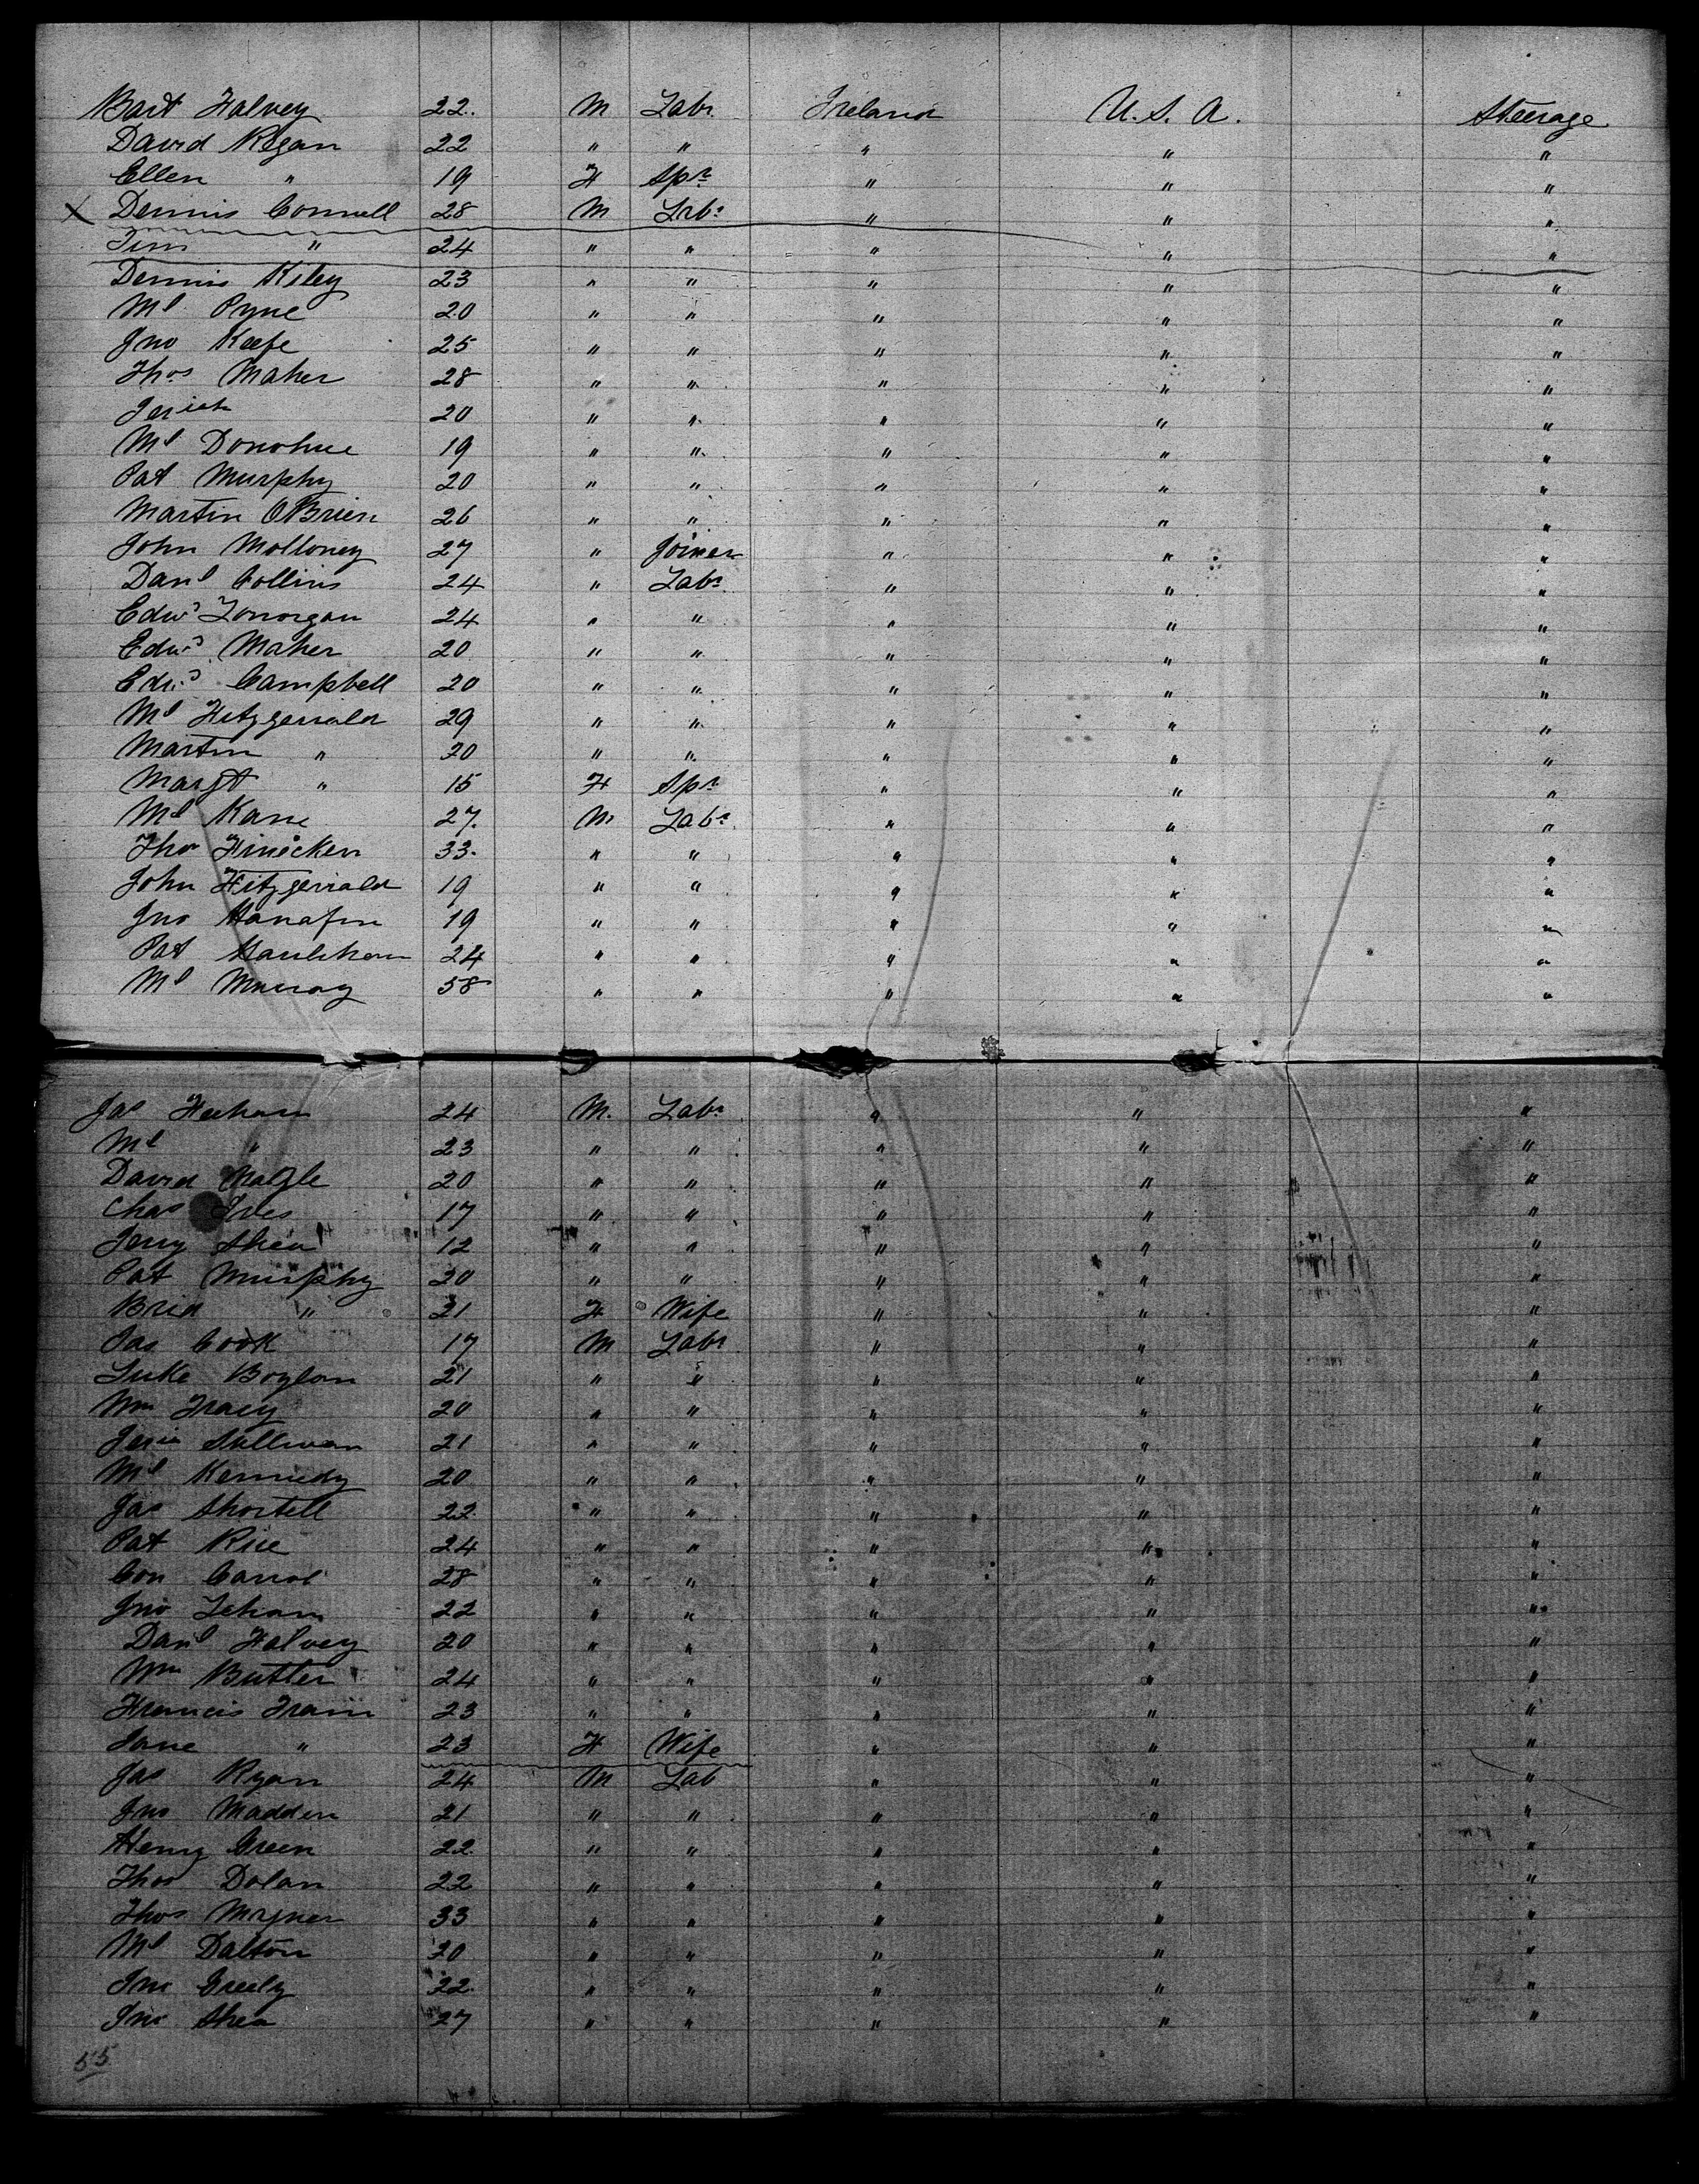 Bart Halvey 22. M Labr. Ireland U. S. A. Steerage
David Regan 22 " " " " "
Ellen " 19 F Spr " " "
X Dennis Connell 28 M Labr " " "
Tim " 24 " " " " "
Dennis Kiley 23 " " " " "
Ml Pyne 20 " " " " "
Jno Keefe 25 " " " " "
Thos Maher 28 " " " " "
20 " " " " "
Ml Donohue 19 " " " " "
Pat Murphy 20 " " " " "
Martin OBrien 26 " " " " "
John Molloney 27 " Joiner " " "
Danl Collins 24 " Labr " " "
Edwd Lonorgan 24 " " " " "
Edwd Maher 20 " " " " "
Edwd Campbell 20 " " " " "
Ml Fitzgerrald 29 " " " " "
Martin " 20 " " " " "
Margt " 15 F Spr " " "
Ml Kane 27. M Labr " " "
Thos 33. " " " " "
John Fitzgerrald 19 " " " " "
Jno Hanafin 19 " " " " "
Pat 24 " " " " "
Ml Murray 58 " " " " "
Jas 24 M. Labr " " "
Ml " 23 " " " " "
David Nagle 20 " " " " "
Chas Ives 17 " " " " "
Jerry Shea 12 " " " " "
Pat Murphy 20 " " " " "
Brid " 21 F Wife " " "
Jas Cook 17 M Labr " " "
Luke Boylan 21 " " " " "
Wm Tracy 20 " " " " "
Jeria Sullivan 21 " " " " "
Ml Kennedy 20 " " " " "
Jas Shortell 22. " " " " "
Pat Rice 24 " " " " "
Con Carrol 28 " " " " "
Jno Lehan 22 " " " " "
Danl Halvey 20 " " " " "
Wm Butler 24 " " " " "
Francis 23 " " " " "
Jane " 23 F Wife " " "
Jas Ryan 24 M Lab " " "
Jno Madden 21 " " " " "
Henry Green 22. " " " " "
Thos Dolan 22 " " " " "
Thos 33 " " " " "
Ml Dalton 20 " " " " "
Jno Greely 22. " " " " "
Jno Shea 27 " " " " "
55